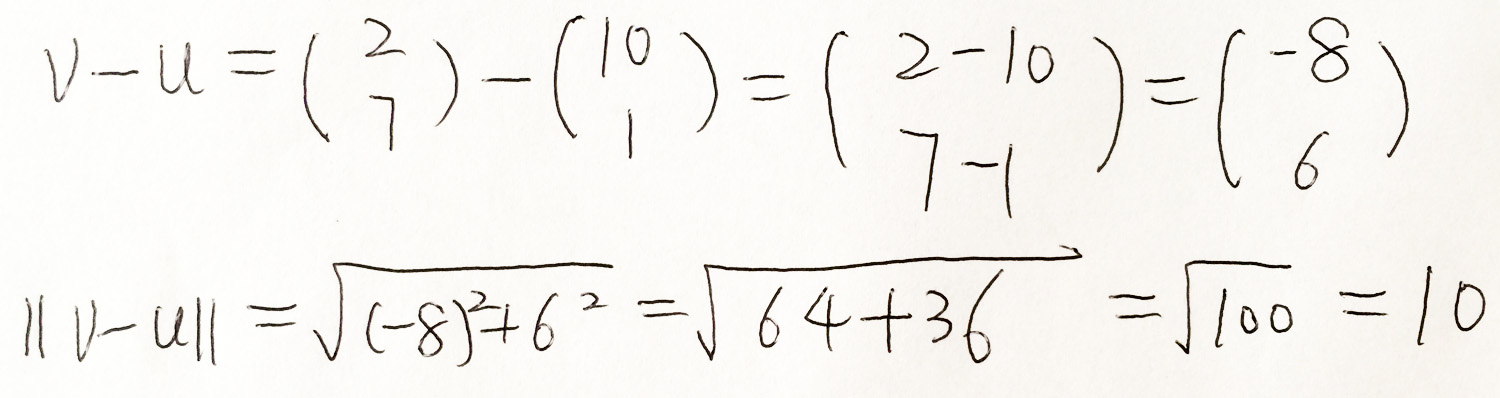 $v - u = \begin{pmatrix} 2 \\ 7 \end{pmatrix} - \begin{pmatrix} 10 \\ 1 \end{pmatrix} = \begin{pmatrix} 2-10 \\ 7-1 \end{pmatrix} = \begin{pmatrix} -8 \\ 6 \end{pmatrix}$
$\| v - u \| = \sqrt{(-8)^2 + 6^2} = \sqrt{64 + 36} = \sqrt{100} = 10$